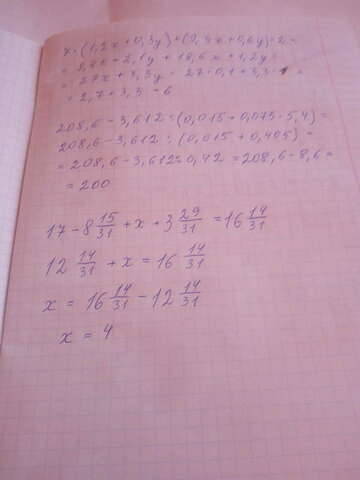 7·(1,2x+0,3y)+(9,3x+0,6y)·2=
=8,4x+2,1y+18,6x+1,2y=
=27x+3,3y=27·0,1+3,3·1=
=2,7+3,3=6
208,6-3,612:(0,015+0,075·5,4)=
208,6-3,612:(0,015+0,405)=
=208,6-3,612:0,42=208,6-8,6=
=200
17-8 15/31+x+3 29/31=16 14/31
12 14/31+x=16 14/31
x=16 14/31-12 14/31
x=4